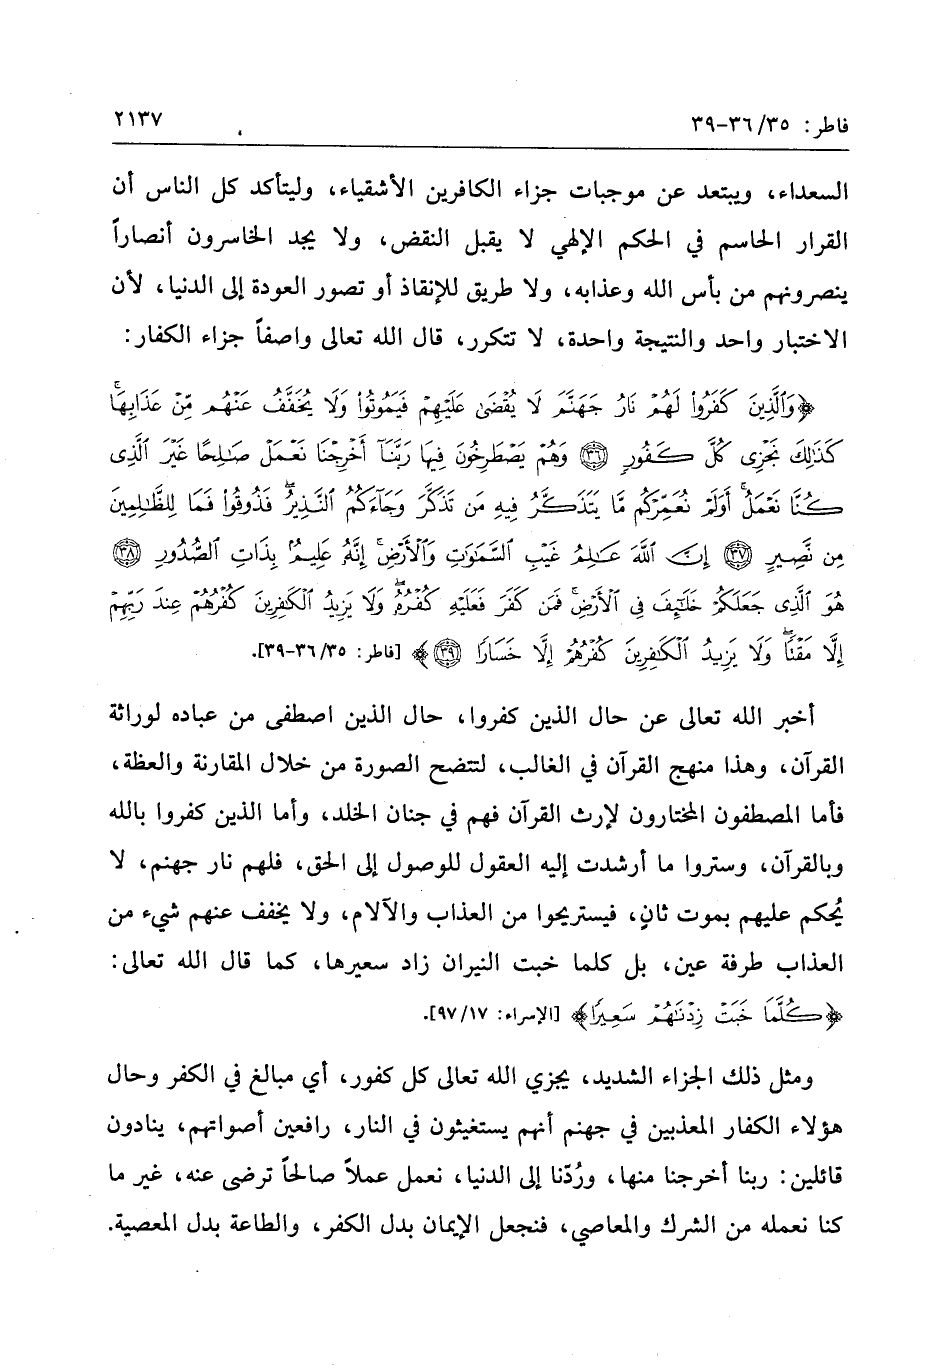 فاطر: ٣٥/٣٦-٣٩ ٢١٣٧
السعداء، ويبتعد عن موجبات جزاء الكافرين الأشقياء، وليتأكد كل الناس أن
القرار الحاسم في الحكم الإلهي لا يقبل النقض، ولا يجد الخاسرون أنصاراً
ينصرونهم من بأس الله وعذابه، ولا طريق للإنقاذ أو تصور العودة إلى الدنيا، لأن
الاختبار واحد والنتيجة واحدة، لا تتكرر، قال الله تعالى واصفاً جزاء الكفار:
﴿وَٱلَّذِينَ كَفَرُوا۟ لَهُمْ نَارُ جَهَنَّمَ لَا يُقْضَىٰ عَلَيْهِمْ فَيَمُوتُوا۟ وَلَا يُخَفَّفُ عَنْهُم مِّنْ عَذَابِهَا ۚ
كَذَٰلِكَ نَجْزِى كُلَّ كَفُورٍ ٣٦ وَهُمْ يَصْطَرِخُونَ فِيهَا رَبَّنَآ أَخْرِجْنَا نَعْمَلْ صَٰلِحًا غَيْرَ ٱلَّذِى
كُنَّا نَعْمَلُ ۚ أَوَلَمْ نُعَمِّرْكُم مَّا يَتَذَكَّرُ فِيهِ مَن تَذَكَّرَ وَجَآءَكُمُ ٱلنَّذِيرُ ۖ فَذُوقُوا۟ فَمَا لِلظَّٰلِمِينَ
مِن نَّصِيرٍ ٣٧ إِنَّ ٱللَّهَ عَٰلِمُ غَيْبِ ٱلسَّمَٰوَٰتِ وَٱلْأَرْضِ ۚ إِنَّهُۥ عَلِيمٌۢ بِذَاتِ ٱلصُّدُورِ ٣٨
هُوَ ٱلَّذِى جَعَلَكُمْ خَلَٰٓئِفَ فِى ٱلْأَرْضِ ۚ فَمَن كَفَرَ فَعَلَيْهِ كُفْرُهُۥ ۖ وَلَا يَزِيدُ ٱلْكَٰفِرِينَ كُفْرُهُمْ عِندَ رَبِّهِمْ
إِلَّا مَقْتًا ۖ وَلَا يَزِيدُ ٱلْكَٰفِرِينَ كُفْرُهُمْ إِلَّا خَسَارًا ٣٩﴾ [فاطر: ٣٥/٣٦-٣٩].
أخبر الله تعالى عن حال الذين كفروا، حال الذين اصطفى من عباده لوراثة
القرآن، وهذا منهج القرآن في الغالب، لتتضح الصورة من خلال المقارنة والعظة،
فأما المصطفون المختارون لإرث القرآن فهم في جنان الخلد، وأما الذين كفروا بالله
وبالقرآن، وستروا ما أرشدت إليه العقول للوصول إلى الحق، فلهم نار جهنم، لا
يُحكم عليهم بموت ثانٍ، فيستريحوا من العذاب والآلام، ولا يخفف عنهم شيء من
العذاب طرفة عين، بل كلما خبت النيران زاد سعيرها، كما قال الله تعالى:
﴿كُلَّمَا خَبَتْ زِدْنَٰهُمْ سَعِيرًا﴾ [الإسراء: ١٧/٩٧].
ومثل ذلك الجزاء الشديد، يجزي الله تعالى كل كفور، أي مبالغ في الكفر وحال
هؤلاء الكفار المعذبين في جهنم أنهم يستغيثون في النار، رافعين أصواتهم، ينادون
قائلين: ربنا أخرجنا منها، ورُدّنا إلى الدنيا، نعمل عملاً صالحاً ترضى عنه، غير ما
كنا نعمله من الشرك والمعاصي، فنجعل الإيمان بدل الكفر، والطاعة بدل المعصية.